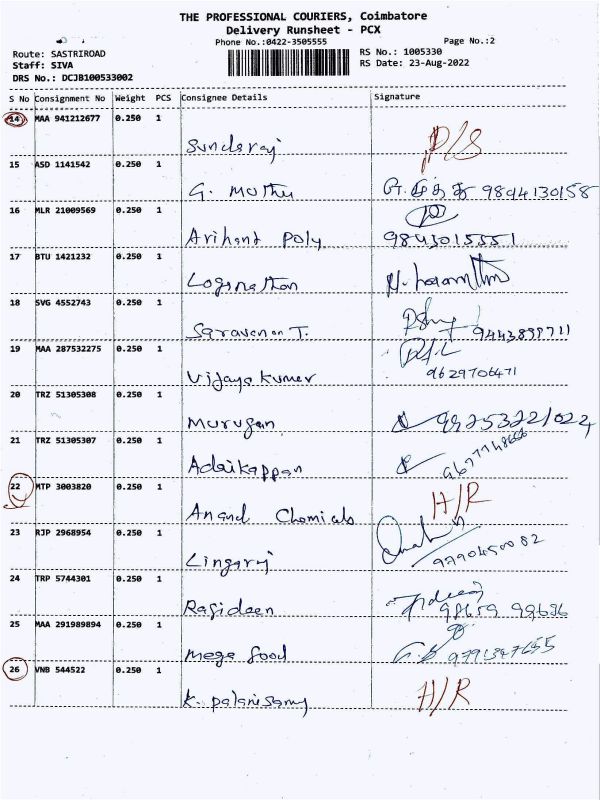 THE PROFESSIONAL COURIERS, Coimbatore
Delivery Runsheet - PCX
Phone No.:0422-3505555 Page No.:2
Route: SASTRIROAD RS No.: 1005330
Staff: SIVA RS Date: 23-Aug-2022
DRS No.: DCJB100533002
S No Consignment No Weight PCS Consignee Details Signature
14 MAA 941212677 0.250 1
Sundaraj D/S
15 ASD 1141542 0.250 1
G. Muthu 9894130158
16 MLR 21009569 0.250 1
Arihant Poly 9843015551
17 BTU 1421232 0.250 1
Loganathan
18 SVG 4552743 0.250 1
Saravanan T. 9443899711
19 MAA 287532275 0.250 1
Vijaya kumar 9629706471
20 TRZ 51305308 0.250 1
Murugan
21 TRZ 51305307 0.250 1
Adaikappan
22 MTP 3003820 0.250 1
Anand Chemicals H/R
23 RJP 2968954 0.250 1
Lingaraj 9790450082
24 TRP 5744301 0.250 1
Rasideen
25 MAA 291989894 0.250 1
Mega food 9791347655
26 VNB 544522 0.250 1
K. Palanisamy H/R